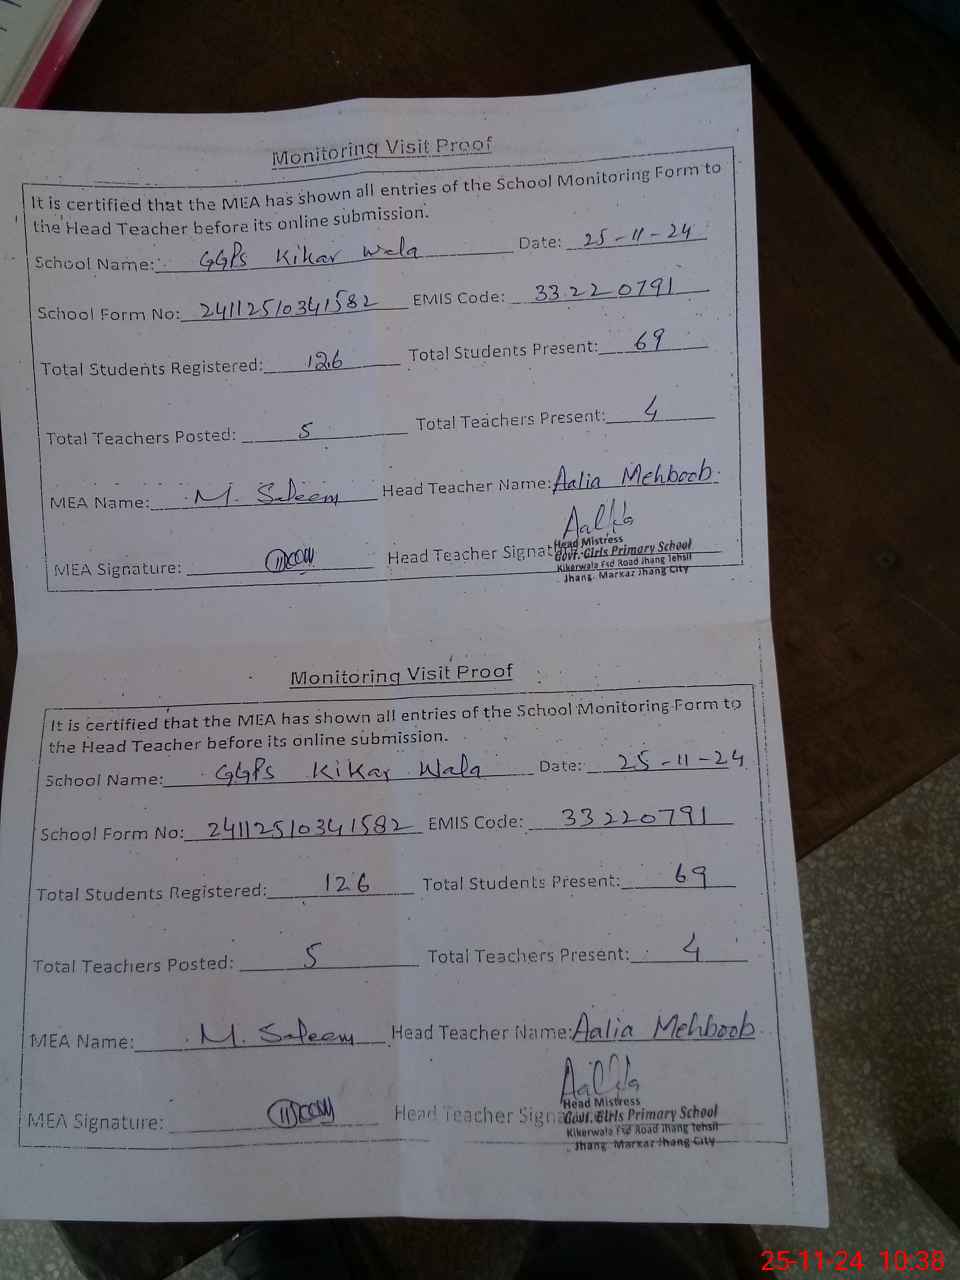 Monitoring Visit Proof
It is certified that the MEA has shown all entries of the School Monitoring Form to
the Head Teacher before its online submission.
School Name: GGPS Kikar Wala Date: 25-11-24
School Form No: 24112510341582 EMIS Code: 33220791
Total Students Registered: 126 Total Students Present: 69
Total Teachers Posted: 5 Total Teachers Present: 4
MEA Name: M. Saleem Head Teacher Name: Aalia Mehboob
Aalia
Head Mistress
MEA Signature: Head Teacher Signat Govt. Girls Primary School
Kikerwala Fsd Road Jhang Tehsil
Jhang. Markaz Jhang City
Monitoring Visit Proof
It is certified that the MEA has shown all entries of the School Monitoring Form to
the Head Teacher before its online submission.
School Name: GGPS Kikar Wala Date: 25-11-24
School Form No: 24112510341582 EMIS Code: 33220791
Total Students Registered: 126 Total Students Present: 69
Total Teachers Posted: 5 Total Teachers Present: 4
MEA Name: M. Saleem Head Teacher Name: Aalia Mehboob
Aalia
Head Mistress
MEA Signature: Head Teacher Signa Govt. Girls Primary School
Kikerwala Fsd Road Jhang Tehsil
Jhang. Markaz Jhang City
25-11-24 10:38